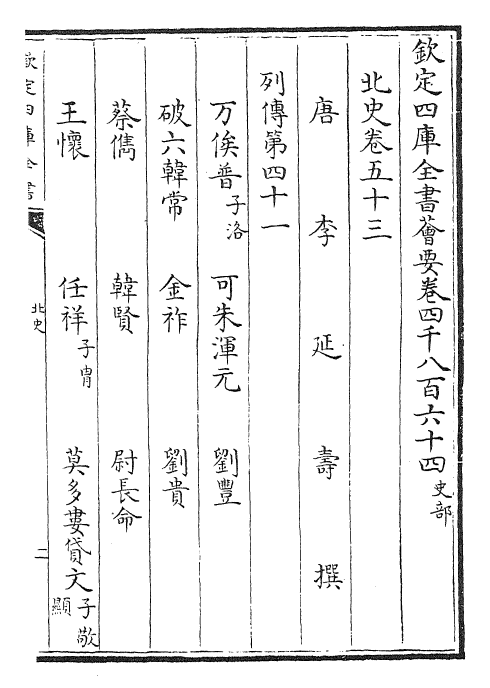 欽定四庫全書薈要卷四千八百六十四 史部
北史卷五十三
唐 李 延 壽 撰
列傳第四十一
万俟普 子洛 可朱渾元 劉豐
破六韓常 金祚 劉貴
蔡儁 韓賢 尉長命
王懷 任祥 子冑 莫多婁貸文 子敬顯
欽定四庫全書
北史
二